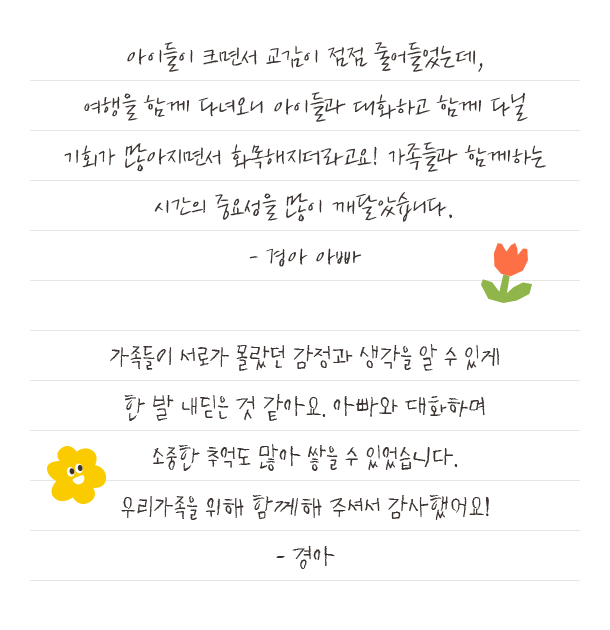 아이들이 크면서 교감이 점점 줄어들었는데,
여행을 함께 다녀오니 아이들과 대화하고 함께 다닐
기회가 많아지면서 화목해지더라고요! 가족들과 함께하는
시간의 중요성을 많이 깨달았습니다.
- 경아 아빠
가족들이 서로가 몰랐던 감정과 생각을 알 수 있게
한 발 내딛은 것 같아요. 아빠와 대화하며
소중한 추억도 많아 쌓을 수 있었습니다.
우리가족을 위해 함께해 주셔서 감사했어요!
- 경아